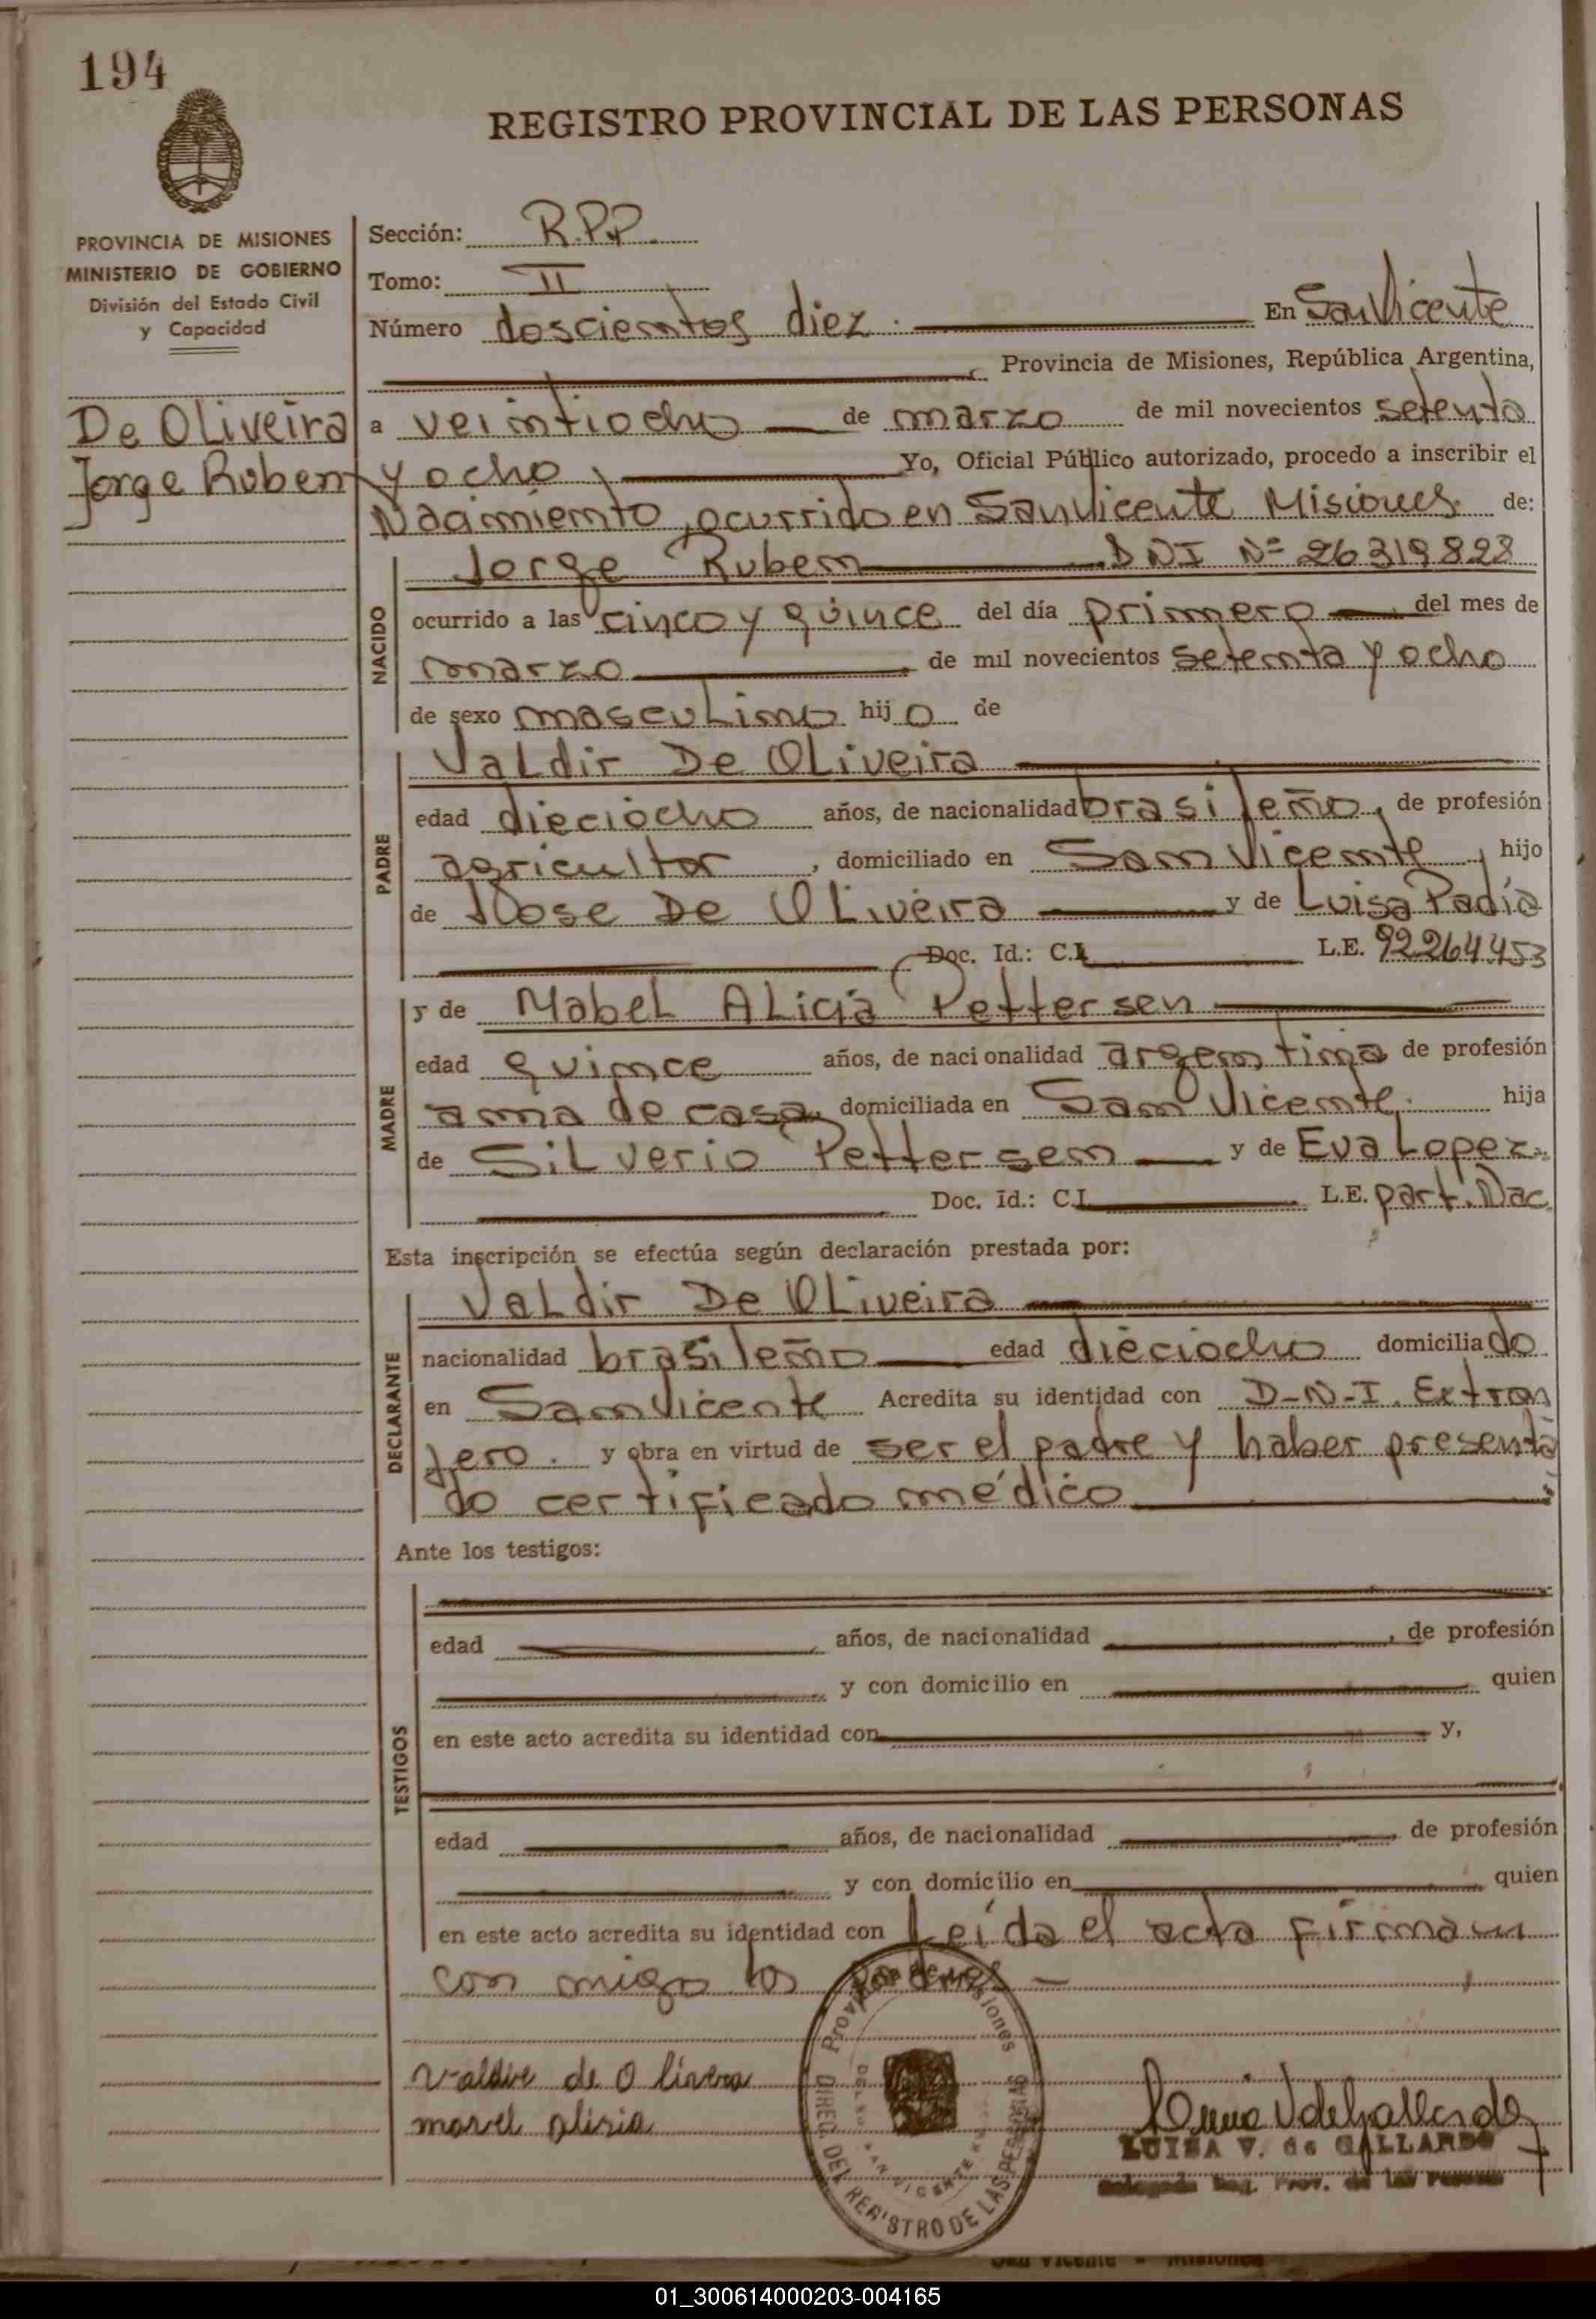 194
REGISTRO PROVINCIAL DE LAS PERSONAS
PROVINCIA DE MISIONES
MINISTERIO DE GOBIERNO
División del Estado Civil
y Capacidad
De Oliveira
Jorge Ruben
Sección: R.P.P.
Tomo: II
Número doscientos diez. En San Vicente
, Provincia de Misiones, República Argentina,
a veintiocho de marzo de mil novecientos setenta
y ocho, Yo, Oficial Público autorizado, procedo a inscribir el
Nacimiento, ocurrido en San Vicente Misiones. de:
NACIDO
Jorge Ruben DNI Nº 26319828
ocurrido a las cinco y quince del día primero del mes de
marzo de mil novecientos setenta y ocho
de sexo masculino hijo de
PADRE
Valdir De Oliveira
edad dieciocho años, de nacionalidad brasileño, de profesión
agricultor, domiciliado en San Vicente, hijo
de Jose De Oliveira y de Luisa Padia
Doc. Id.: C.I. L.E. 92264453
MADRE
y de Mabel Alicia Pettersen
edad quince años, de nacionalidad argentina de profesión
ama de casa, domiciliada en San Vicente. hija
de Silverio Pettersen y de Eva Lopez.
Doc. Id.: C.I. L.E. part. Nac.
Esta inscripción se efectúa según declaración prestada por:
DECLARANTE
Valdir De Oliveira
nacionalidad brasileño edad dieciocho domiciliado
en San Vicente Acredita su identidad con D-N-I. Extran
jero. y obra en virtud de ser el padre y haber presenta
do certificado médico
Ante los testigos:
TESTIGOS
edad años, de nacionalidad , de profesión
y con domicilio en quien
en este acto acredita su identidad con y,
edad años, de nacionalidad de profesión
y con domicilio en quien
en este acto acredita su identidad con Leída el acta firman
con migo los padres
Valdir de Olivera
mavel alisia
Provincia de Misiones
DIREC. DEL REGISTRO DE LAS PERSONAS
SAN VICENTE
LUISA V. de GALLARDO
Delegada Reg. Prov. de las Personas
San Vicente - Misiones
01_300614000203-004165